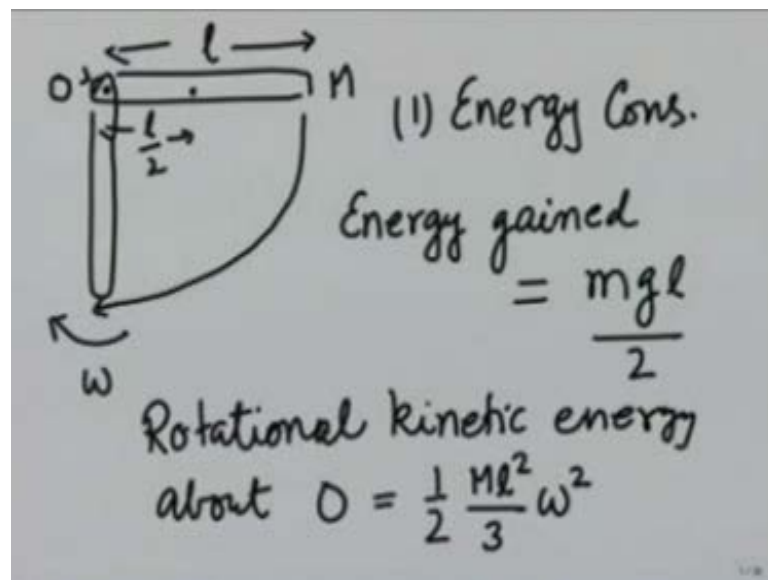 l
O M
l/2
(1) Energy Cons.
Energy gained
= mgl/2
ω
Rotational kinetic energy
about O = 1/2 Ml²/3 ω²